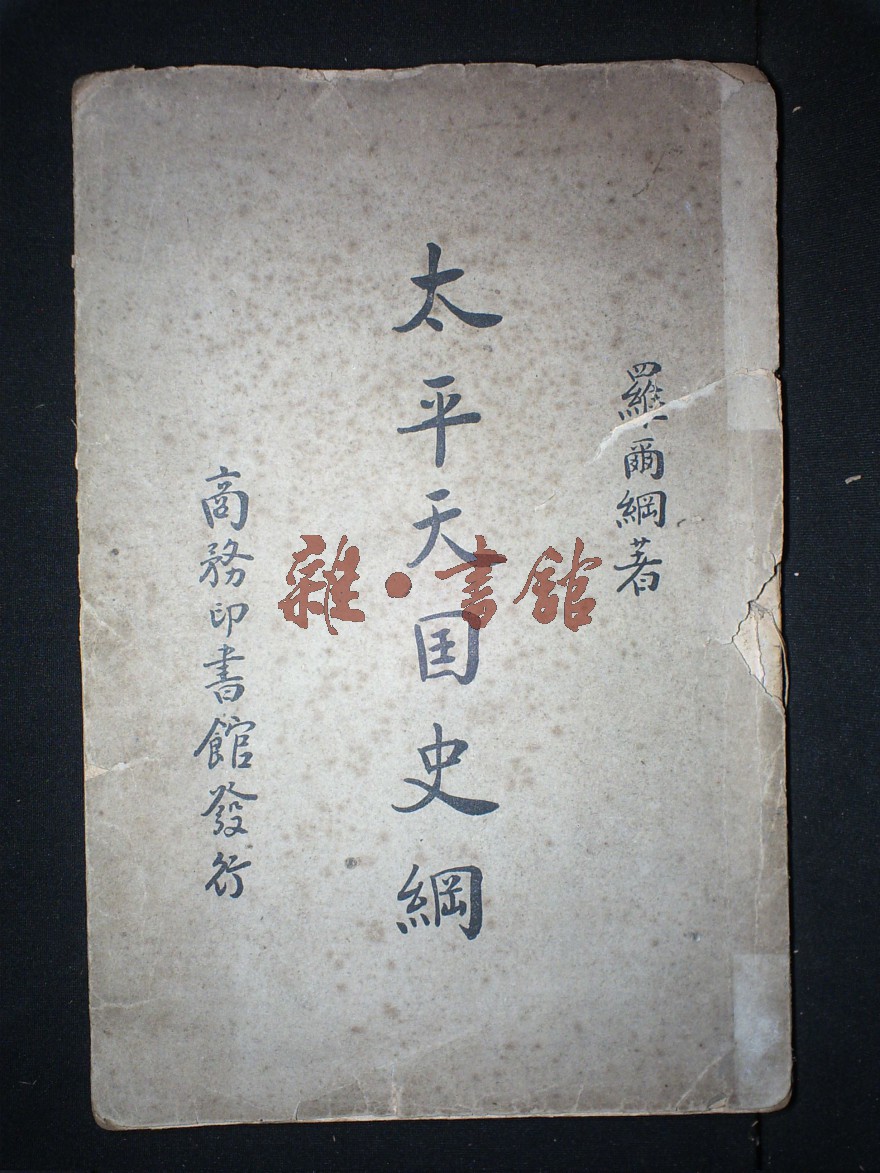 羅爾綱著
太平天囯史綱
商務印書館發行
雜·書館